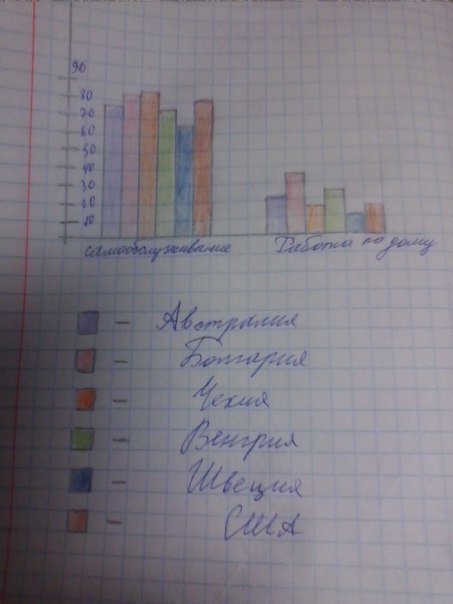 90
80
70
60
50
40
30
20
10
самообслуживание
Работы по дому
– Австралия
– Болгария
– Чехия
– Венгрия
– Швеция
– США